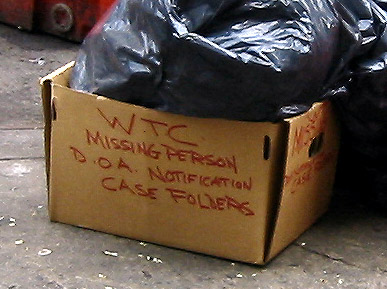 W.T.C
MISSING PERSON
D.O.A. NOTIFICATION
CASE FOLDERS
MISSING